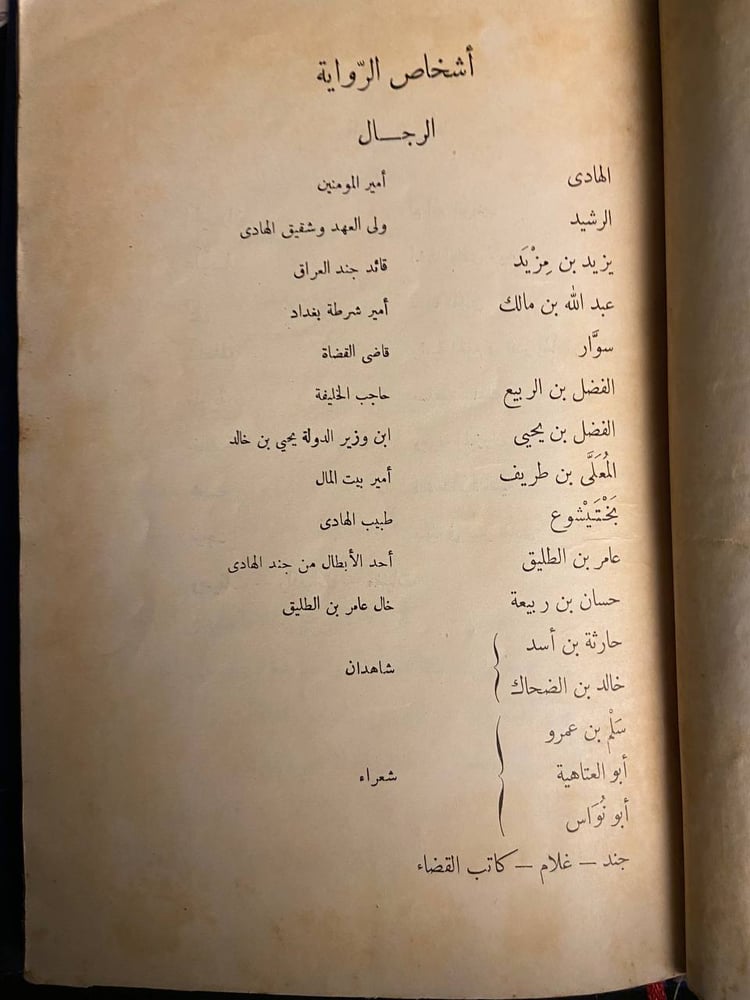 أشخاص الرّواية
الرجـــال
الهادى أمير المومنين
الرشيد ولى العهد وشقيق الهادى
يزيد بن مِزْيَد قائد جند العراق
عبد الله بن مالك أمير شرطة بغداد
سوَّار قاضى القضاة
الفضل بن الربيع حاجب الخليفة
الفضل بن يحيى ابن وزير الدولة يحيي بن خالد
المُعَلَّى بن طريف أمير بيت المال
بَخْتَيْشوع طبيب الهادى
عامر بن الطليق أحد الأبطال من جند الهادى
حسان بن ربيعة خال عامر بن الطليق
حارثة بن أسد
شاهدان
خالد بن الضحاك
سَلْم بن عمرو
أبو العتاهية شعراء
أبو نُوَاس
جند — غلام — كاتب القضاء